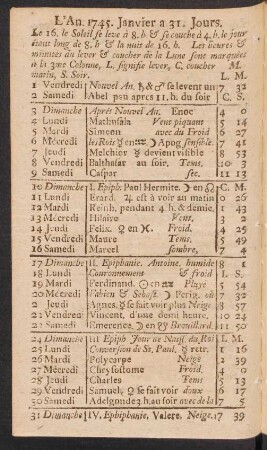 L'An. 1745. Janvier a 31. Jours.
Le 16. le Soleil se leve à 8. h. & se couche à 4. h. le jour
étant long de 8. h & la nuit de 16. h. Les heures &
minutes du lever & coucher de la Lune sont marquées
à la 3me Colonne, L. signifie lever, C. coucher M.
matin, S. Soir. L. M.
1 Vendredi Nouvel An. ♄ & ♂ se levent un 7 32
2 Samedi Abel peu apres 11. h. du soir C. S.
3 Dimanche Aprés Nouvel An. Enoc 4 0
4 Lundi Mathusala Vent piquant 5 14
5 Mardi Simeon avec du Froid 6 27
6 Mécredi les Rois ☿ ☽ Apog sensible. 7 41
7 Jeudi Melchior ☿ devient visible 8 53
8 Vendredi Balthasar au soir. Tems, 10 3
9 Samedi Caspar sec. 11 13
10 Dimanche I. Epiph. Paul Hermite. ☽ en ☊ C. M.
11 Lundi Erard. ♃ est à voir au matin 0 26
12 Mardi Reinh, pendant 4. h, & demie, 1 43
13 Mécredi Hilaire Vent, 3 2
14 Jeudi Felix. ♀ en ♓. Froid. 4 25
15 Vendredi Maure Tems, 5 49
16 Samedi Marcel Sombre, 7 4
17 Dimanche II. Epiphanie. Antoine. humide 8 1
18 Lundi Couronnement & froid L. S.
19 Mardi Ferdinand. ☉ en ♒ Pluye 5 54
20 Mécredi Fabien & Sebast. ☽ Perig. ob 7 32
21 Jeudi Agnes. ☿ se fait voir plus Neige 8 57
22 Vendredi Vincent, d'une demi heure. 10 24
23 Samedi Emerence. ☽ en ☋ Brouillard. 11 50
24 Dimanche III Epiph Jour de Naiss. du Roi L. M.
25 Lundi Conversion de St. Paul, ☿ retr. 1 16
26 Mardi Polycarpe Neige 2 39
27 Mécredi Chrysostome Froid. 4 0
28 Jeudi Charles Tems 5 13
29 Vendredi Samuel, ♀ se fait voir doux 6 17
30 Samedi Adelgonde 3 h, au soir avec ♃ & ♂. 7 5
31 Dimanche IV. Ephiphanie, Valere. Neige. 7 39